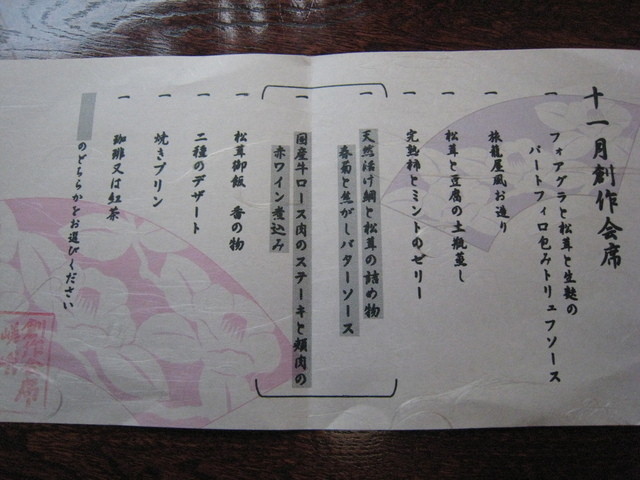 十一月創作会席
一 フォアグラと松茸と生麩の
パートフィロ包みトリュフソース
一 旅籠屋風お造り
一 松茸と豆腐の土瓶蒸し
一 完熟柿とミントのゼリー
一 天然活け鯛と松茸の詰め物
春菊と焦がしバターソース
一 国産牛ロース肉のステーキと頬肉の
赤ワイン煮込み
一 松茸御飯 香の物
一 二種のデザート
一 焼きプリン
一 珈琲又は紅茶
のどちらかをお選びください
創作会席